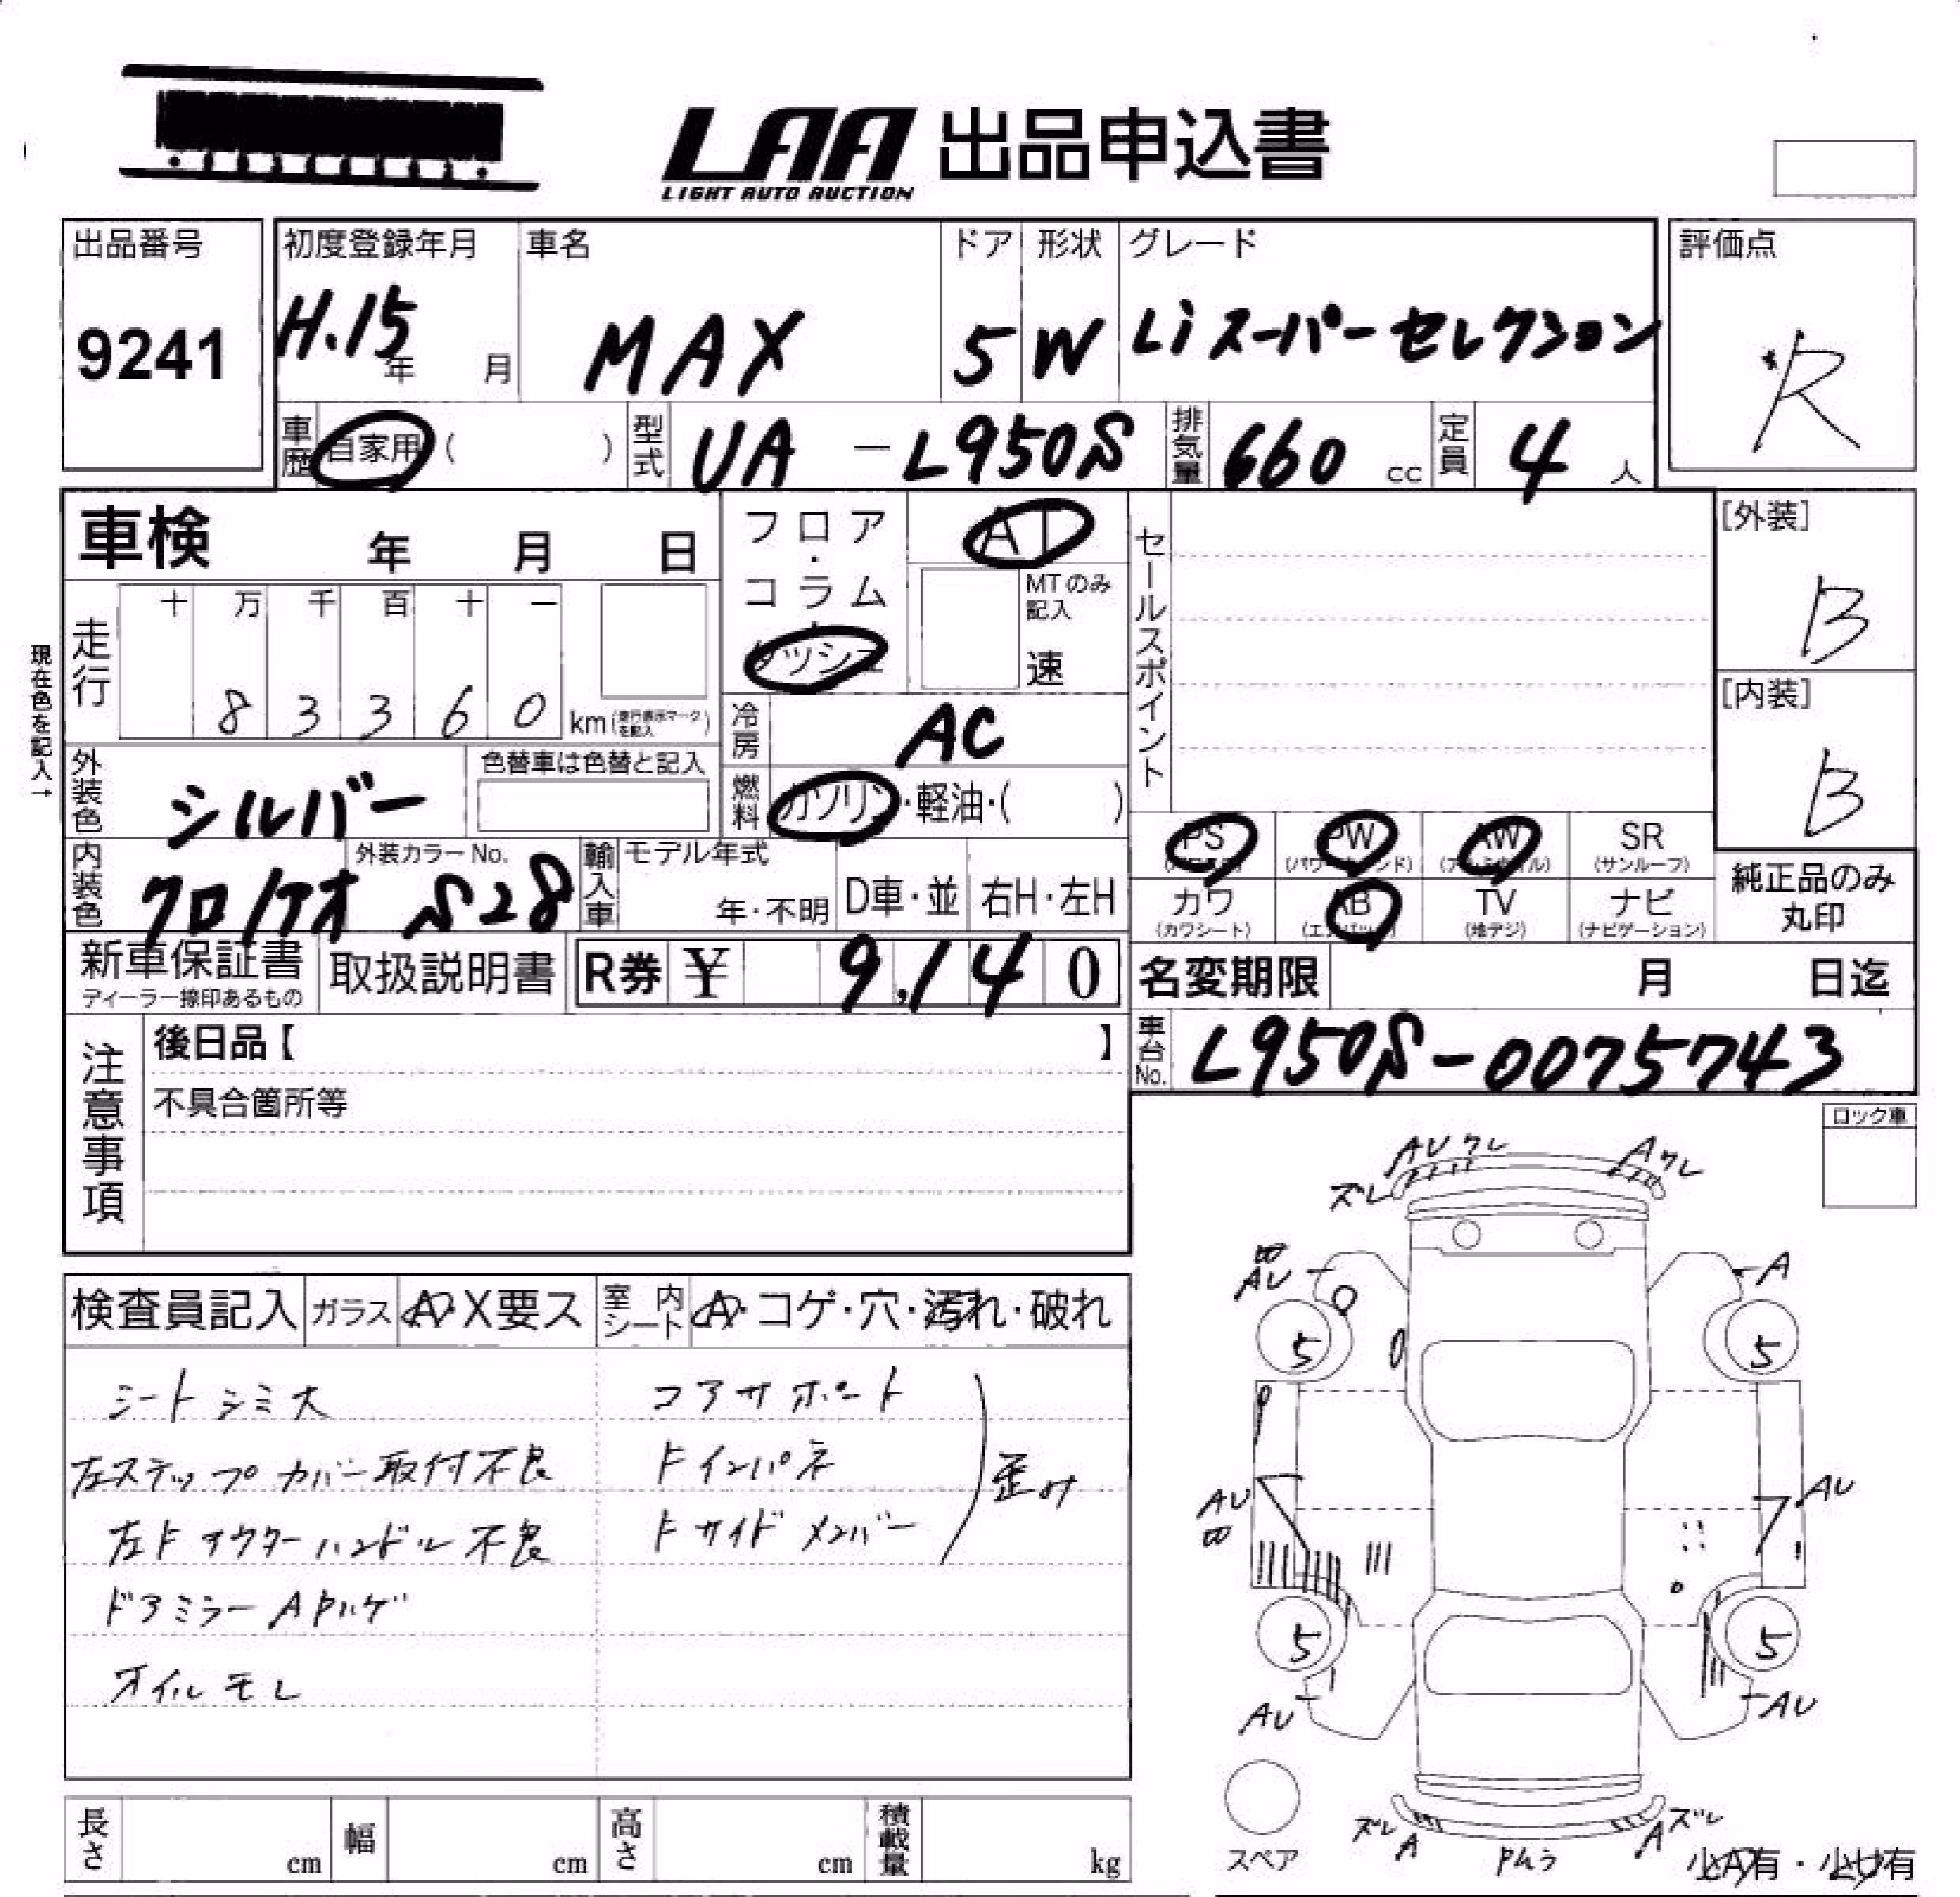 LAA 出品申込書
LIGHT AUTO AUCTION
出品番号
9241
初度登録年月
H.15年 月
車名
MAX
ドア
5
形状
W
グレード
Li スーパーセレクション
評価点
*R
車歴 自家用 ( )
型式 UA - L950S
排気量 660 cc
定員 4 人
車検 年 月 日
フロア・コラム・ダッシュ
AT
MTのみ記入
速
セールスポイント
[外装]
B
[内装]
B
現在色を記入→
走行
十 万 千 百 十 一
8 3 3 6 0 km (走行表示マークを記入)
冷房 AC
燃料 ガソリン・軽油・( )
外装色 シルバー
色替車は色替と記入
内装色 クロ/アオ
外装カラーNo.
S28
輸入車
モデル年式
年・不明
D車・並
右H・左H
PS PW AW SR
(サンルーフ)
カワ AB TV ナビ
(カワシート) (エアバッグ) (地デジ) (ナビゲーション)
純正品のみ
丸印
新車保証書
ディーラー捺印あるもの
取扱説明書
R券 ¥ 9,140
名変期限 月 日迄
車台No. L950S-0075743
注意事項
後日品【 】
不具合箇所等
ロック車
検査員記入 ガラス A・X要ス 室内シート A・コゲ・穴・汚れ・破れ
シート シミ大
左ステップカバー取付不良
左F アウターハンドル不良
ドアミラー A Pハゲ
オイルモレ
コアサポート
Fインパネ
Fサイドメンバー
歪み
AU ワレ
Aワレ
ズレ
凹
AU
A
5
5
AU
凹
AU
5
5
AU
AU
スペア
ズレ A
Pムラ
A ズレ
小A有・小U有
長さ cm
幅 cm
高さ cm
積載量 kg